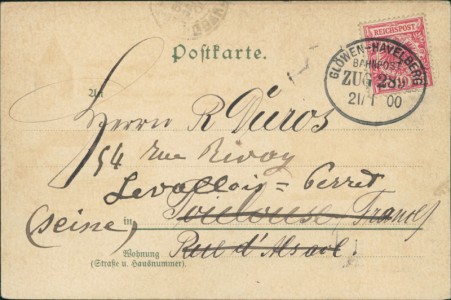 Postkarte.
REICHSPOST
GLÖWEN-HAVELBERG
BAHNPOST
ZUG 289
21/1 00
An
Herrn R Duros
54 rue Rivay
Levallois = Perret
(Seine)
in Toulouse France
Wohnung Rue d'Alsace.
(Straße u. Hausnummer)